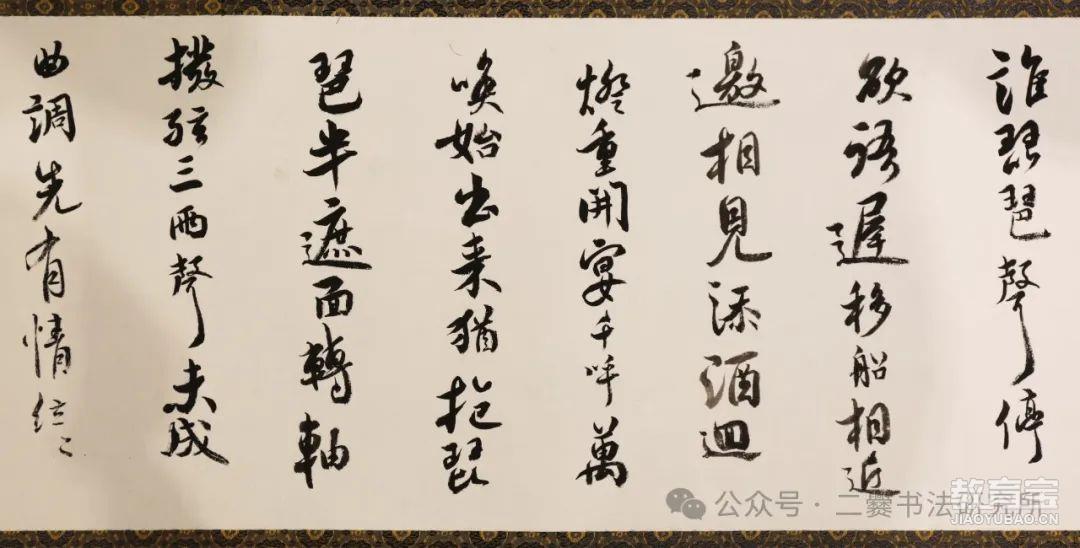 誰琵琶聲停
欲語遲移船相近
邀相見添酒迴
燈重開宴千呼萬
喚始出来猶抱琵
琶半遮面轉軸
撥弦三兩聲未成
曲調先有情絃〻
公众号 · 二爨书法研究所
教育宝
JIAOYUBAO.CN